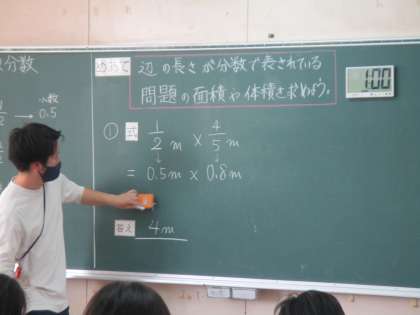 分数
小数
1/2 → 0.5
めあて 辺の長さが分数で表されている
問題の面積や体積を求めよう。
1:00
① 式 1/2 m × 4/5 m
↓ ↓
= 0.5m × 0.8m
答え 4m